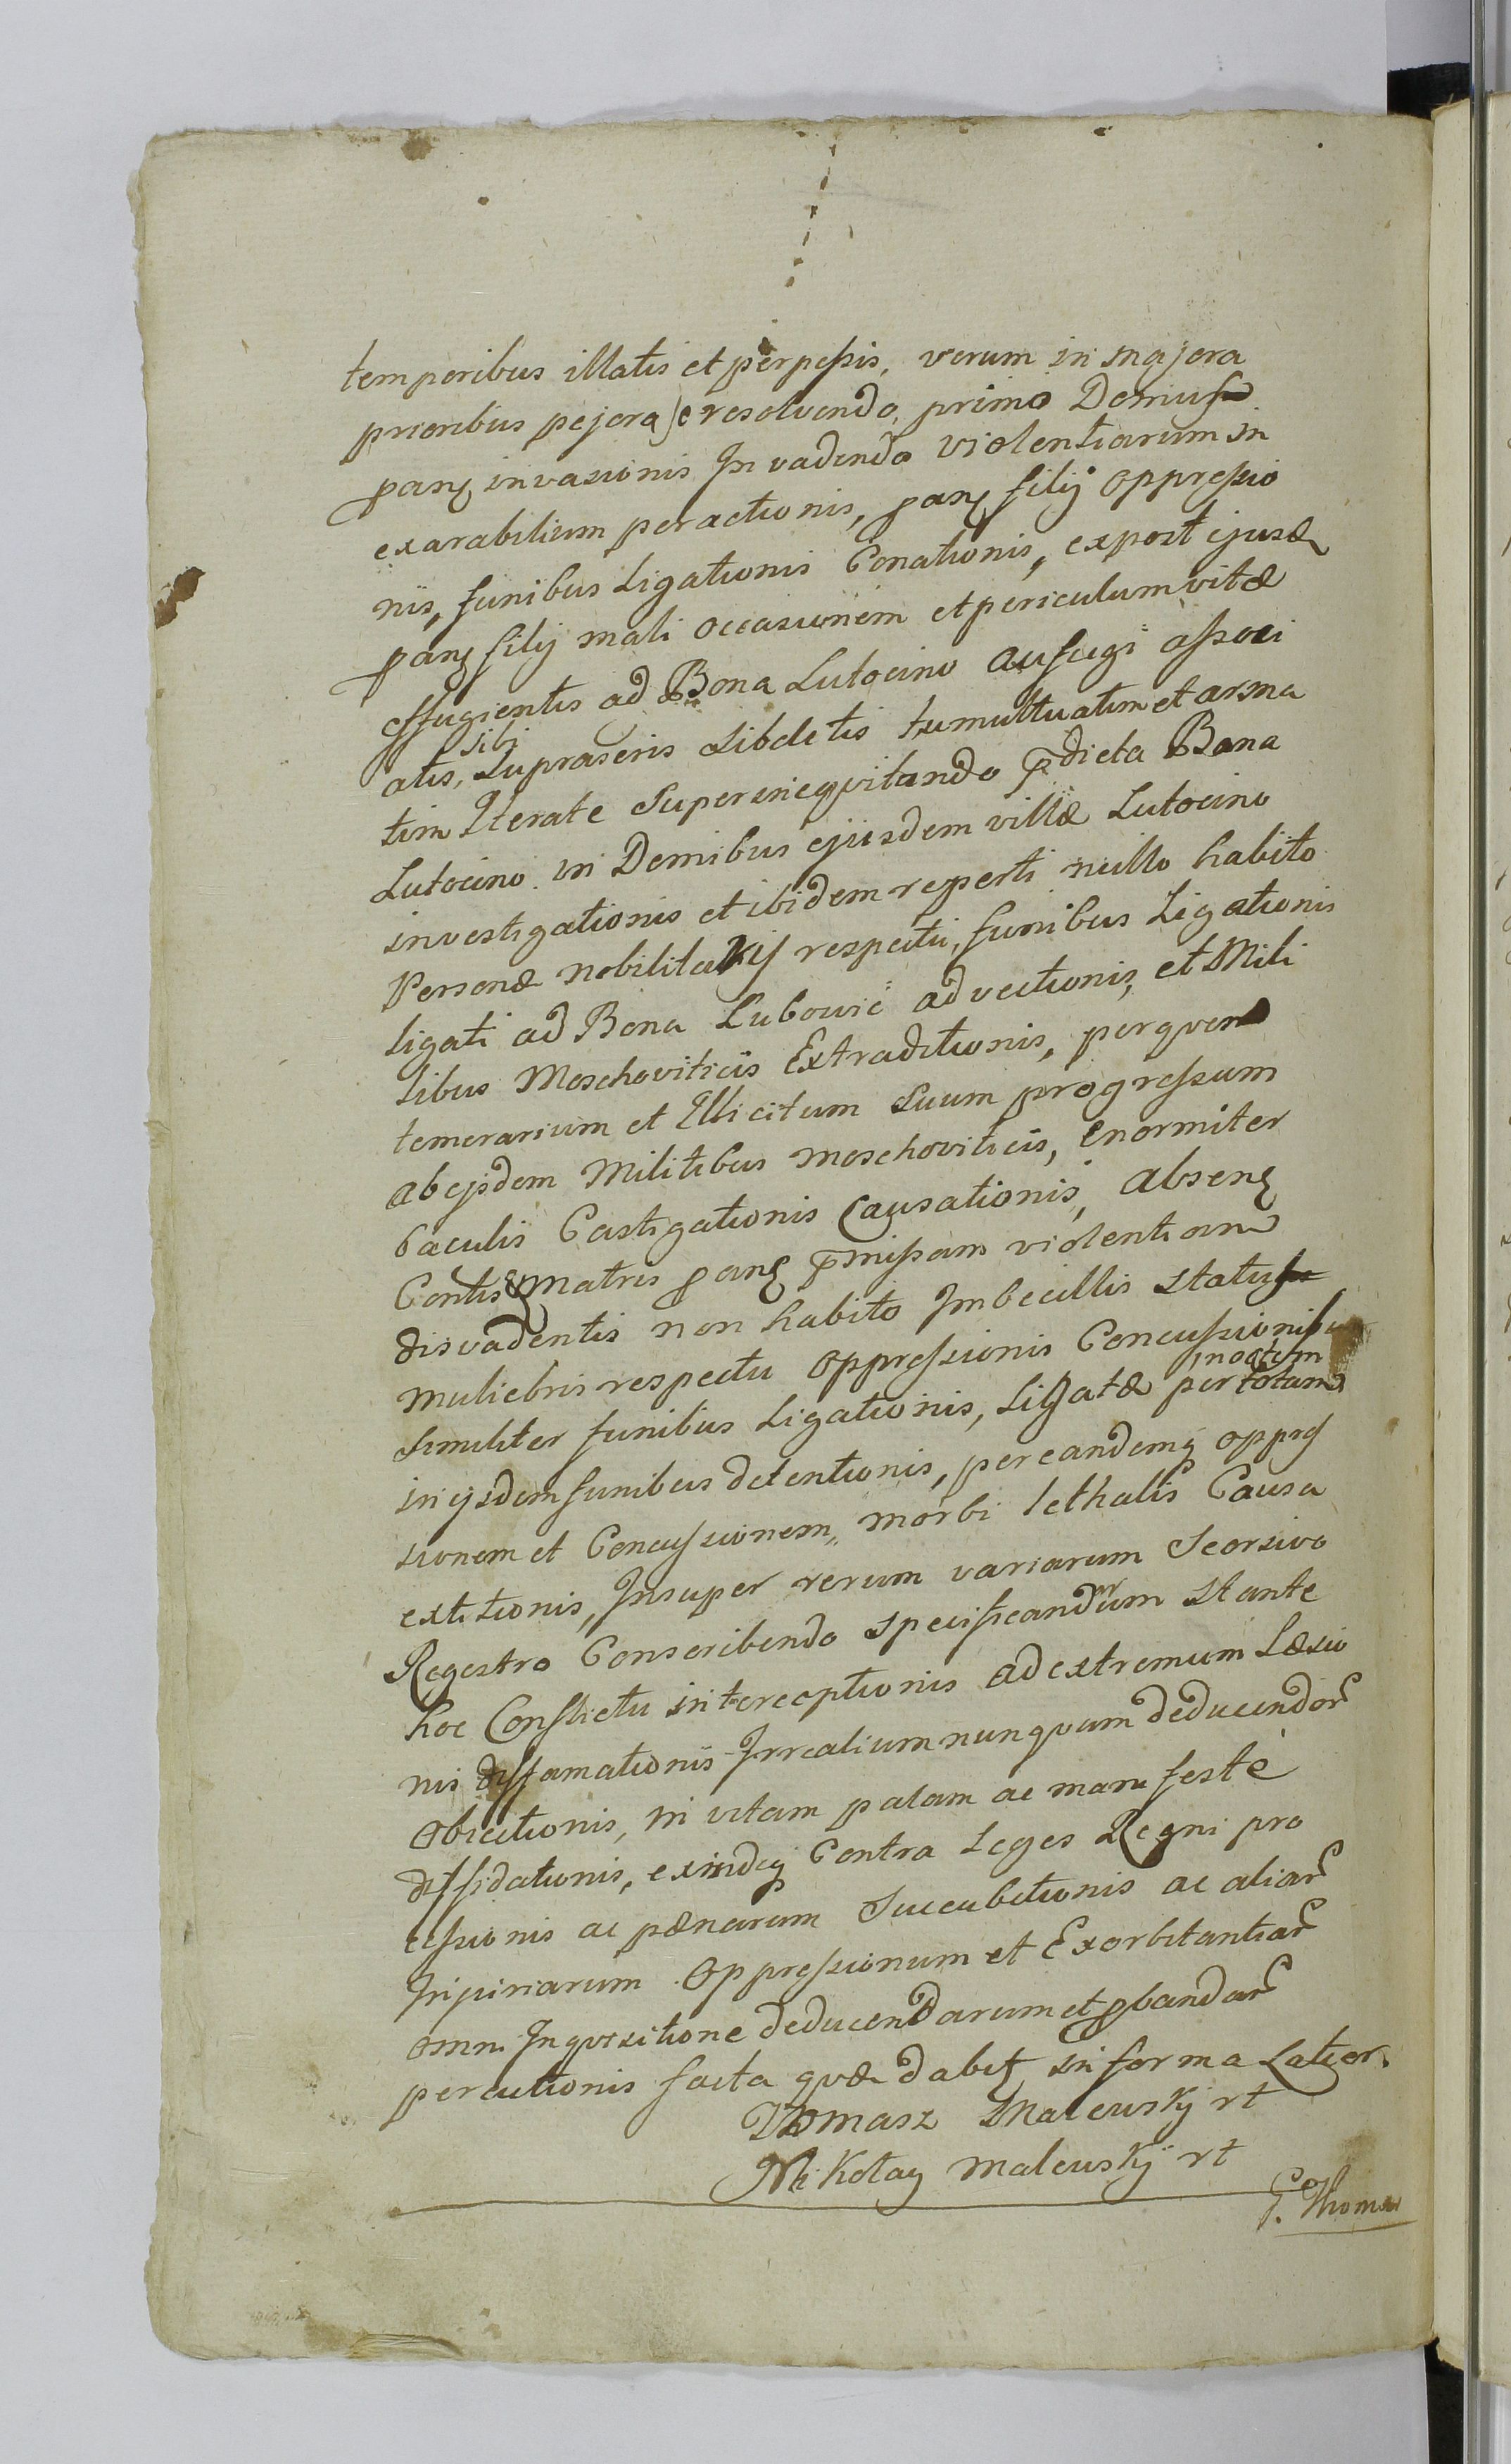 temporibus illatis et perpessis, verum in majora
prioribus pejora se resolvendo, primo Domus
pang invasionis Invadendo violentiarum in
exarabilium peractionis, pang filij oppressio
nis, funibus Ligationis Conationis, expost ejusd
pang filij mali occasionem et periculum vitæ
effugientis ad Bona Lutocino aufugi associ
atis, sibi
Supraseris Libelitis tumultuatim et arma
tim Iterate Superineqvitando p̄dicta Bona
Lutocino in Domibus ejusdem villæ Lutocino
investigationis et ibidem reperti nullo habito
Personæ nobilitaris respectu, funibus Ligationis
ligati ad Bona Lubowic advectionis, et Mili
tibus Moschoviticis Extraditionis, per qvem
temerarium et Illicitum Suum progressum
ab ejsdem Militibus moschoviticis, enormiter
baculis Castigationis Causationis, absenq
Contisq matris pang p̄missam violentiam
disvadentis non habito Imbecillis status
muliebris respectu oppressionis Concussionibus
similiter funibus Ligationis, Ligatæ per totam
noctem
in ejsdem funibus detentionis, per eandemq oppres
sionem et Concussionem, morbi lethalis Causa
extitionis, Insuper rerum variarum Seorsivo
Regestro Conscribendo specificandarum Stante
hoc Conflictu interceptionis ad extremum Læsio
nis diffamationis Irrealium nunqvam deducendor
Obiectionis, in vitam palam ac manifestè
diffidationis, exindeq Contra Leges Regni pro
cessionis ac pænarum Succubitionis ac aliar
Injuriarum Oppressionum et Exorbitantiar
omni Inqvisitione deducendarum et pbandar
peractionis facta qvæ dabit in forma Latior.
Thomasz Malewskj rt
Mikołay Malewskj rt
G. Thomas